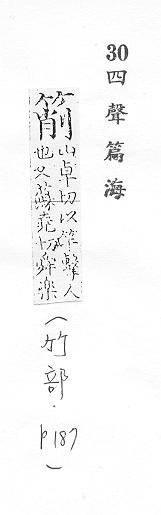 30 四聲篇海
箾 山卓切以竿擊人
也又蘇堯切舞樂
(竹部．P187)